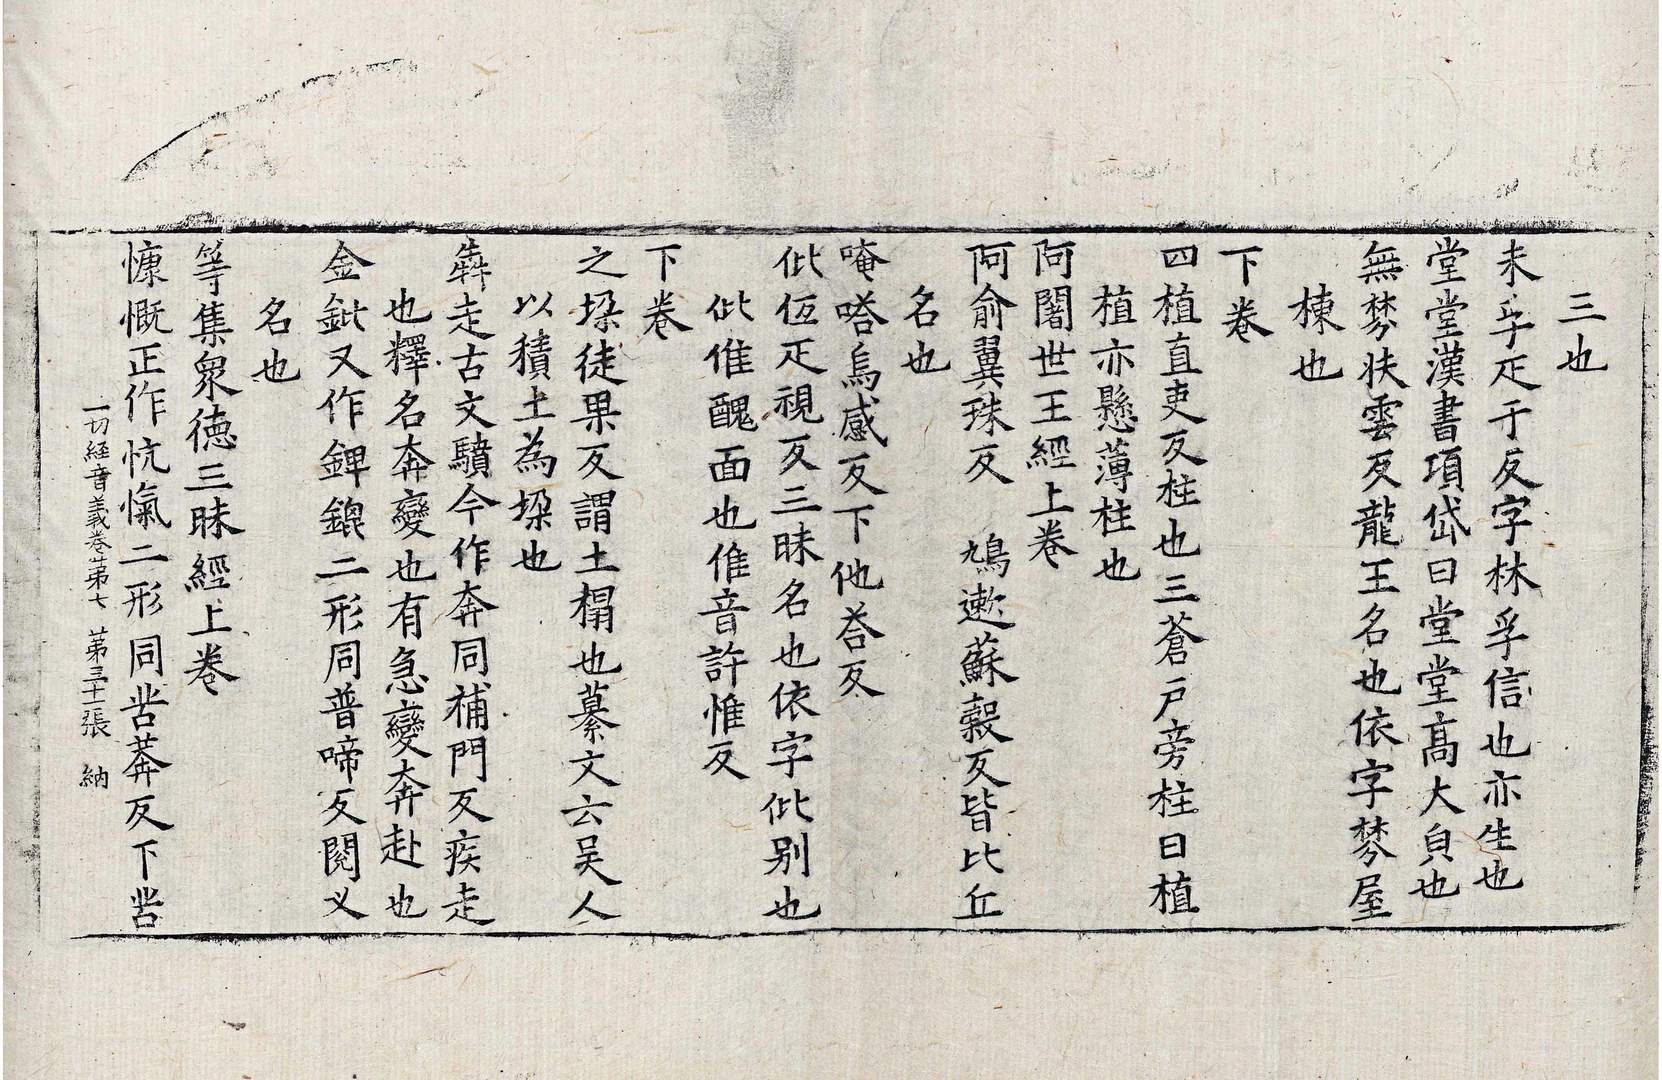 三也
未孚疋于反字林孚信也亦生也
堂堂漢書項岱曰堂堂高大皃也
無棼扶雲反龍王名也依字棼屋
棟也
下卷
四植直吏反柱也三蒼戶旁柱曰植
植亦懸薄柱也
阿闍世王經上卷
阿俞翼珠反 鳩遬蘇穀反皆比丘
名也
唵嗒烏感反下他荅反
仳㑌疋視反三昧名也依字仳别也
仳倠醜面也倠音許惟反
下卷
之垜徒果反謂土榻也纂文云吴人
以積土為垜也
犇走古文驞今作奔同補門反疾走
也釋名奔變也有急變奔赴也
金錍又作鎞二形同普啼反閱叉
名也
等集衆德三昧經上卷
慷慨正作忼愾二形同苦莽反下苦
一切經音義卷第七 第三十一張 納